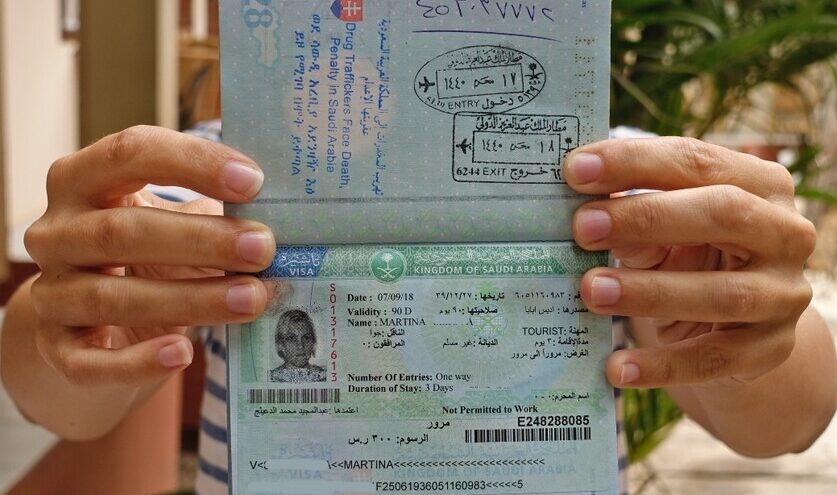 ٢٥٣٠٩٧٧٧
مطار الملك عبدالعزيز الدولي
١٧ محرم ١٤٤٠
ENTRY دخول
مطار الملك عبدالعزيز الدولي
١٨ محرم ١٤٤٠
6244 EXIT خروج
تهريب المخدرات إلى المملكة العربية السعودية
عقوبتها الإعدام
Drug Traffickers Face Death
Penalty in Saudi Arabia
VISA تأشيرة
KINGDOM OF SAUDI ARABIA
S01317613
Date : 07/09/18
تاريخها : ٣٩/١٢/٢٧
رقم : ٦٠٥١١٦٠٩٨٣
Validity : 90 D
صلاحيتها : ٩٠ يوم
مصدرها : اديس ابابا
Name : MARTINA
TOURIST
المهنة :
الناقل : جوا
المرافقون : ٠٠
الديانة : غير مسلم
مدة الإقامة : ٣ يوم
الغرض : مروراً الى مرور
Number Of Entries: One way
Duration of Stay: 3 Days
اسم المحرم : ٠ - ٠
اعتمدها : عبدالمجيد محمد الدعيلج
Not Permitted to Work
مرور
E248288085
الرسوم : ٣٠٠ ر.س
V<
\<MARTINA<<<<<<<<<<<<<<<<<<<<
F25061936051160983<<<<<5